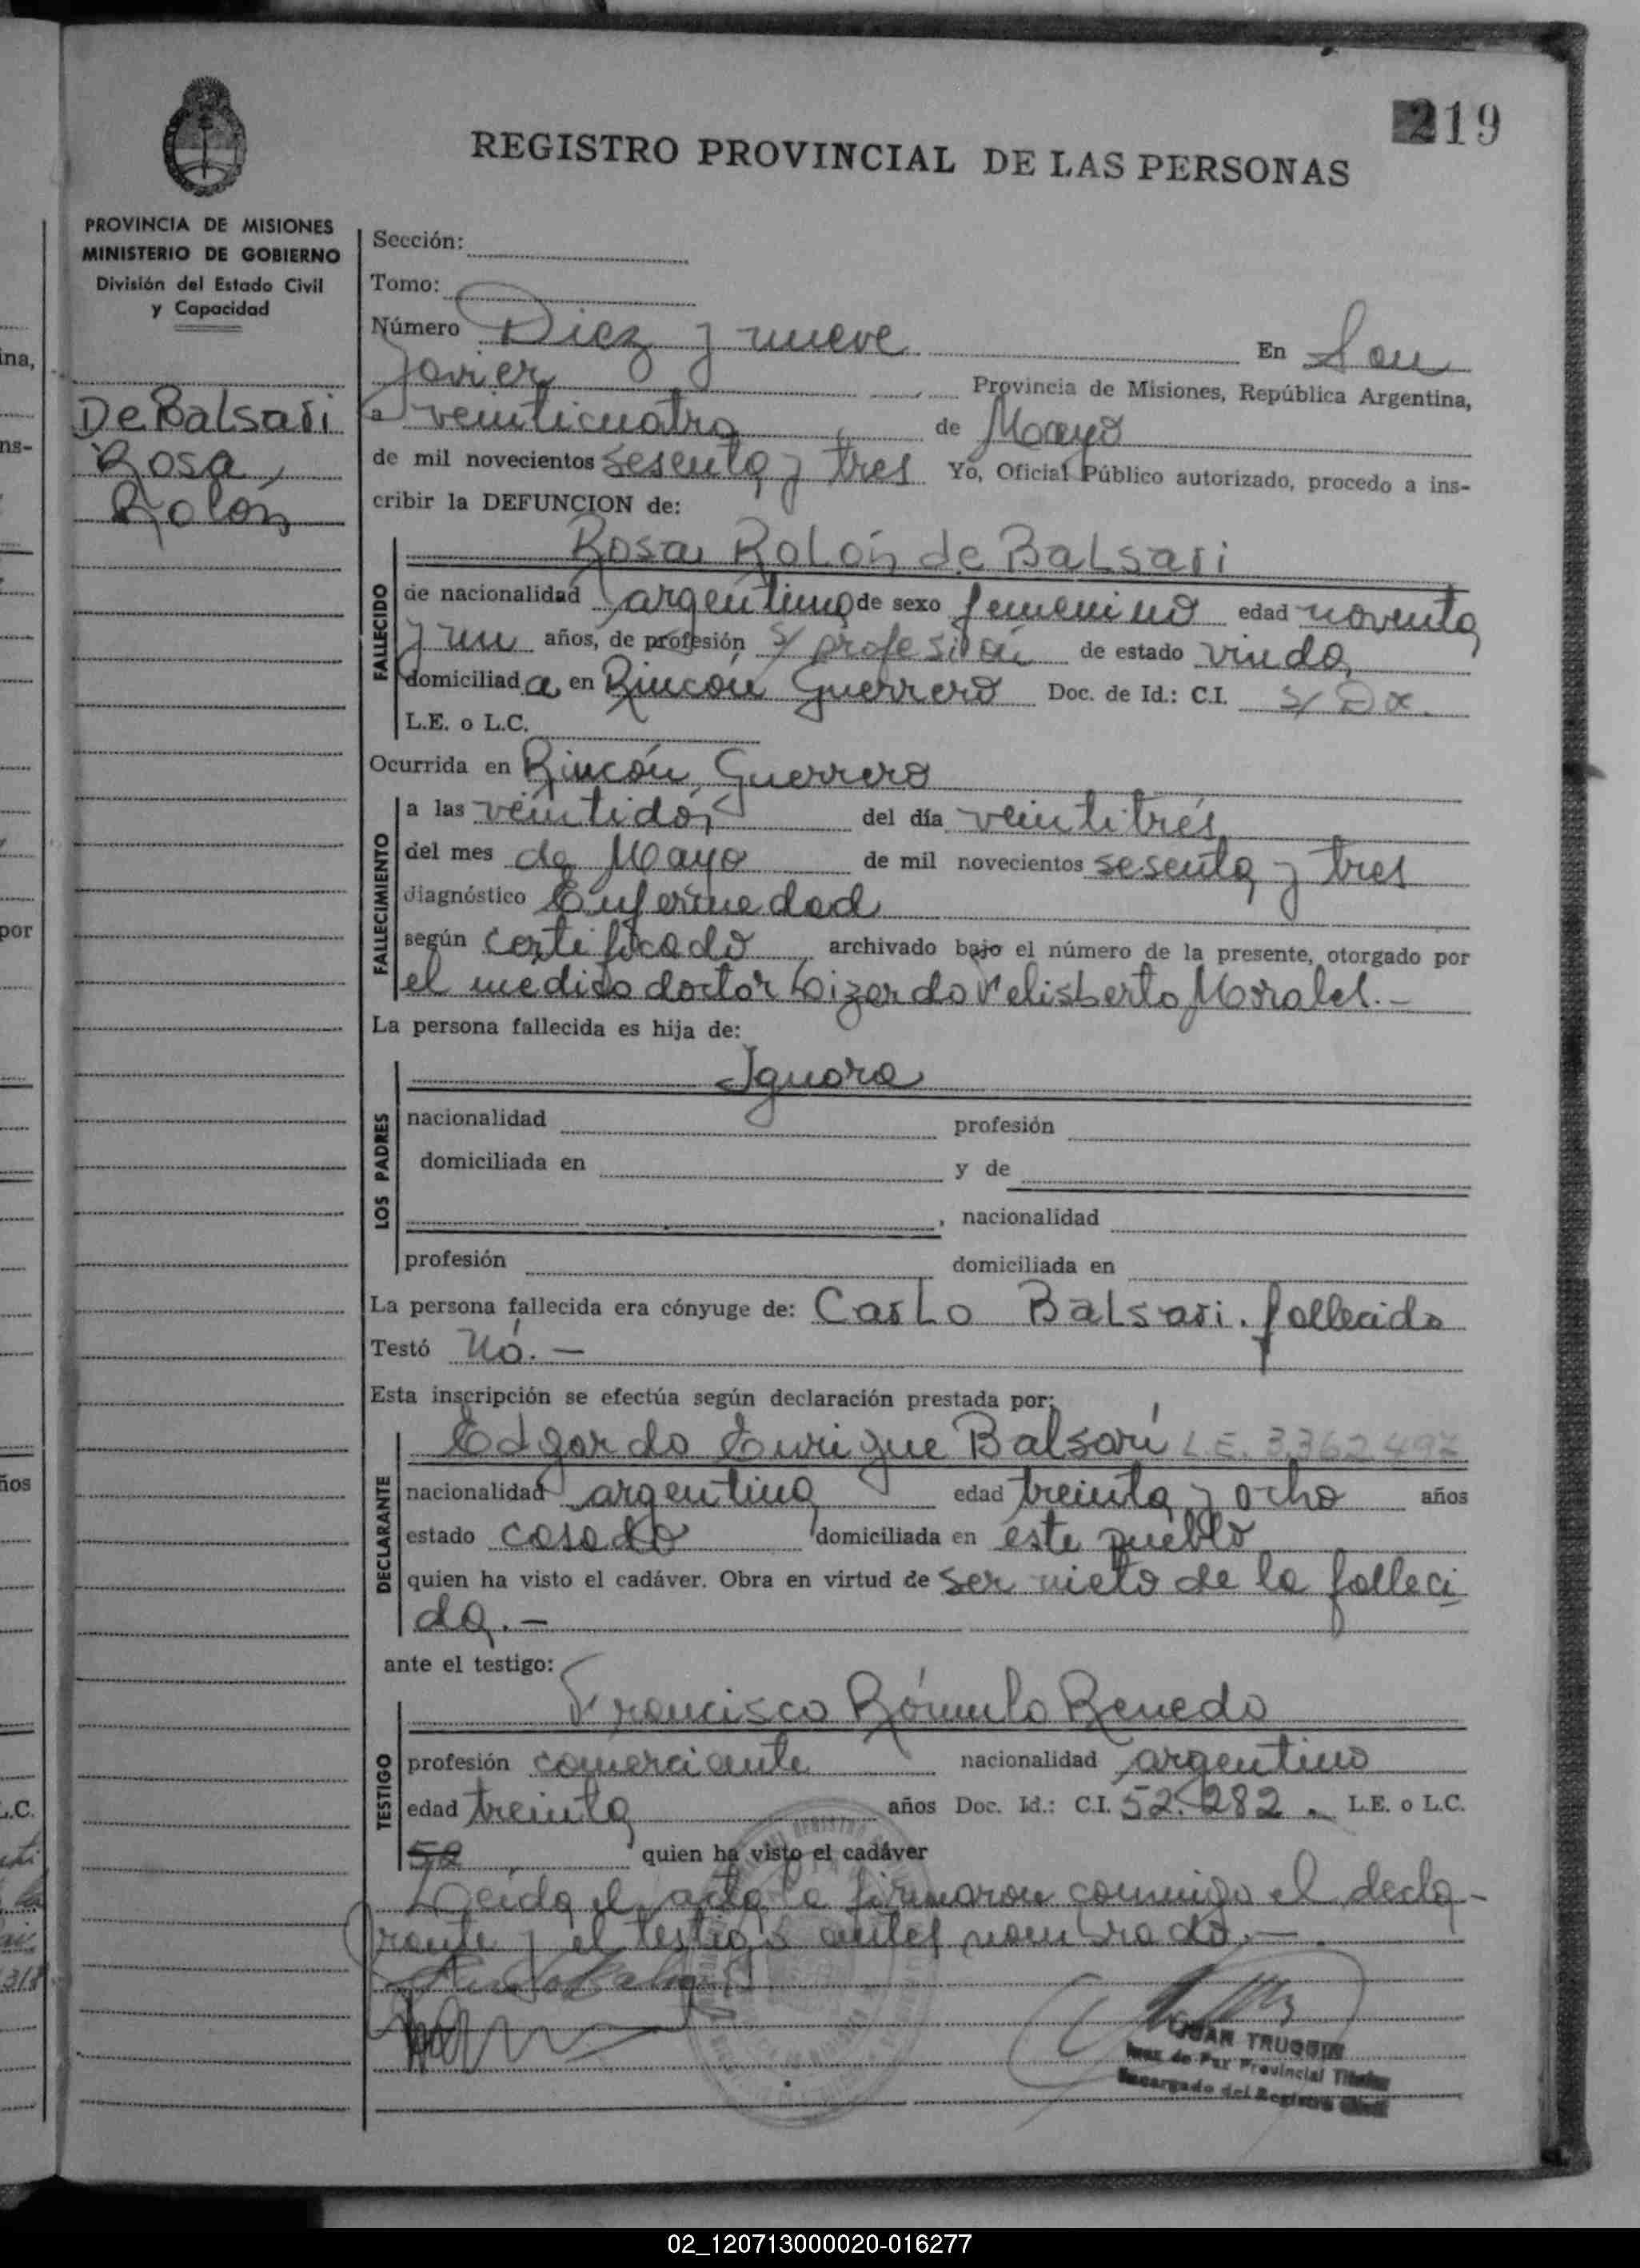 219
REGISTRO PROVINCIAL DE LAS PERSONAS
PROVINCIA DE MISIONES
MINISTERIO DE GOBIERNO
División del Estado Civil
y Capacidad
De Balsari
Rosa,
Rolón
Sección:
Tomo:
Número Diez y nueve En San
Javier Provincia de Misiones, República Argentina,
a veinticuatro de Mayo
de mil novecientos sesenta y tres Yo, Oficial Público autorizado, procedo a ins-
cribir la DEFUNCION de:
Rosa Rolón de Balsari
FALLECIDO
de nacionalidad argentina de sexo femenino edad noventa
y un años, de profesión s/ profesión de estado viuda
domiciliada en Rincón Guerrero Doc. de Id.: C.I. s/
L.E. o L.C.
Ocurrida en Rincón Guerrero
FALLECIMIENTO
a las veintidós del día veintitrés
del mes de Mayo de mil novecientos sesenta y tres
diagnóstico Enfermedad
según certificado archivado bajo el número de la presente, otorgado por
el medico doctor Lizardo Felisberto Morales.-
La persona fallecida es hija de:
Ignora
LOS PADRES
nacionalidad profesión
domiciliada en y de
, nacionalidad
profesión domiciliada en
La persona fallecida era cónyuge de: Carlo Balsari. fallecido
Testó Nó.-
Esta inscripción se efectúa según declaración prestada por:
Edgardo Enrique Balsari L.E. 3.362.497
DECLARANTE
nacionalidad argentina edad treinta y ocho años
estado casado domiciliada en este pueblo
quien ha visto el cadáver. Obra en virtud de ser nieto de la falleci
da.-
ante el testigo:
Francisco Rómulo Benedo
TESTIGO
profesión comerciante nacionalidad argentino
edad treinta años Doc. Id.: C.I. 52.282. L.E. o L.C.
quien ha visto el cadáver
Leida el acta la firmaron conmigo el decla-
rante y el testigo antes nombrado.-
JUAN TRUQUIN
Juez de Paz Provincial Titular
Encargado del Registro Civil
ina,
ns-
por
ños
L.C.
02_120713000020-016277